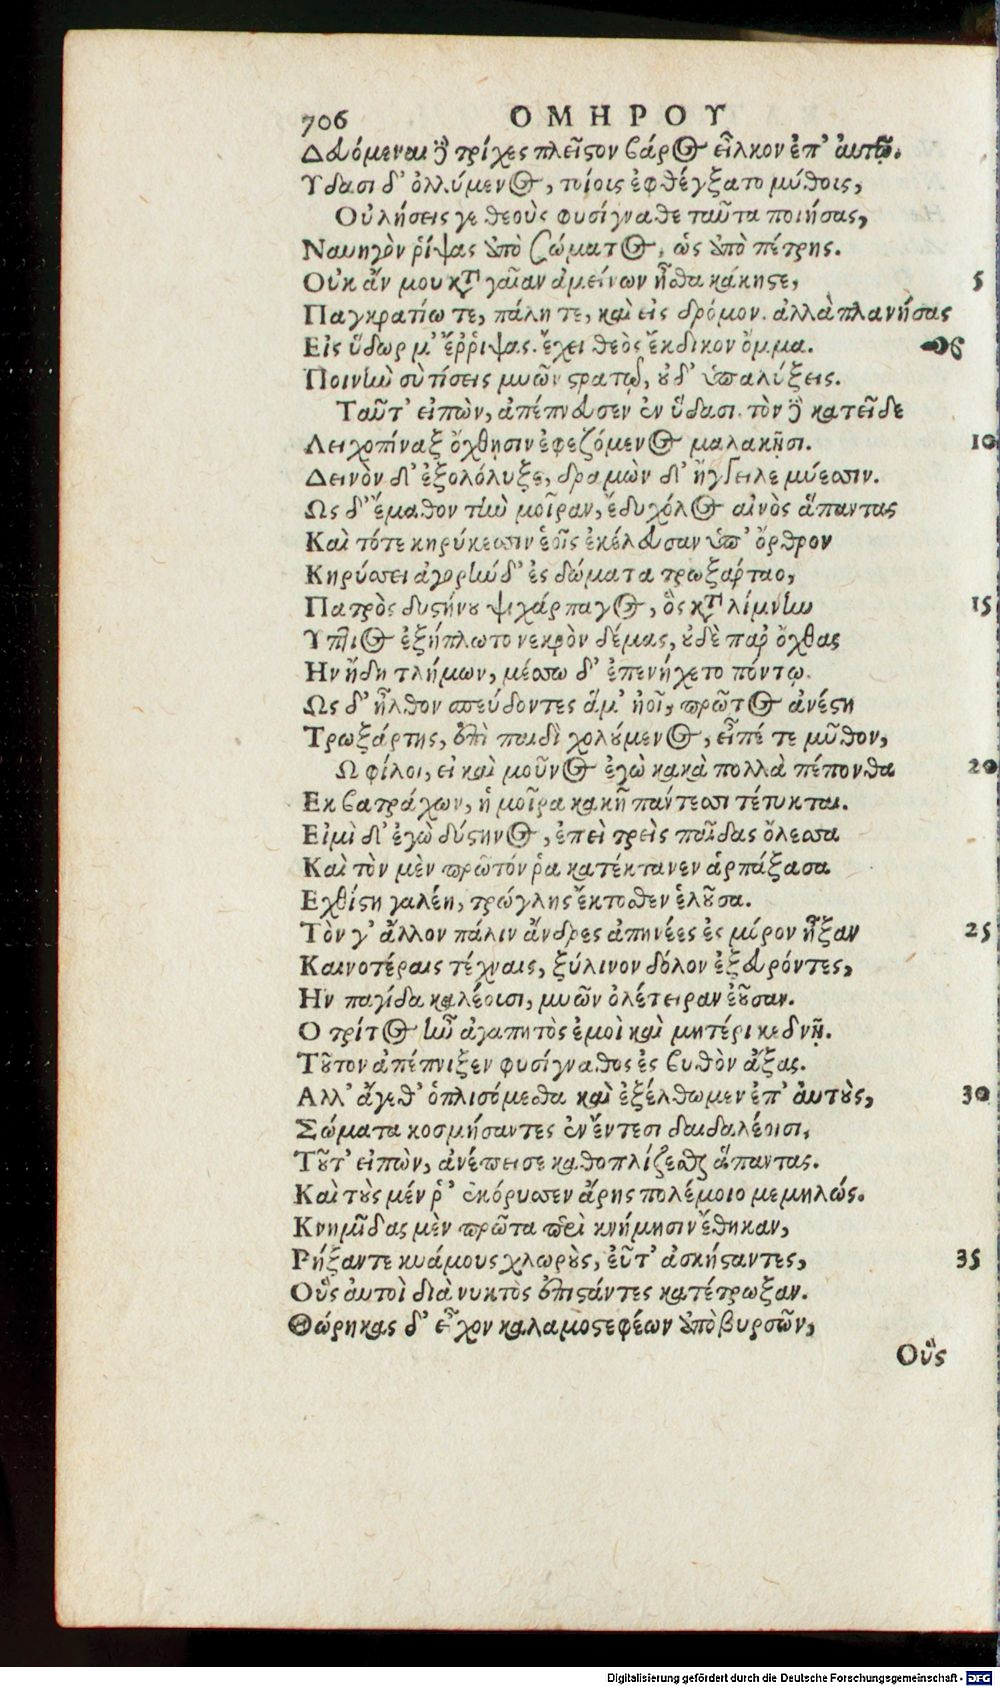 706 ΟΜΗΡΟΥ
Δευόμεναι δὲ τρίχες πλεῖςον βάρος εἷλκον ἐπ' ἀυτῷ.
Υδασι δ' ὀλλύμενος, τοίοις ἐφθέγξατο μύθοις,
Οὐ λήσεις γε θεοὺς φυσίγναθε ταῦτα ποιήσας,
Ναυηγὸν ῥίψας ἀπὸ σώματος, ὡς ἀπὸ πέτρης.
Οὐκ ἄν μου κατὰ γαῖαν ἀμείνων ἦσθα κάκιςε, 5
Παγκρατίῳ τε, πάλῃ τε, καὶ εἰς δρόμον. ἀλλὰ πλανήσας
Εἰς ὕδωρ μ' ἔῤῥιψας. ἔχει θεὸς ἔκδικον ὄμμα.
Ποινὴν σὺ τίσεις μυῶν ςρατῷ, οὐδ' ὑπαλύξεις.
Ταῦτ' εἰπὼν, ἀπέπνευσεν ἐν ὕδασι. τὸν δὲ κατεῖδε
Λειχοπίναξ ὄχθῃσιν ἐφεζόμενος μαλακῇσι. 10
Δεινὸν δ' ἐξολόλυξε, δραμὼν δ' ἤγγειλε μύεσσιν.
Ως δ' ἔμαθον τὴν μοῖραν, ἔδυ χόλος αἰνὸς ἅπαντας
Καὶ τότε κηρύκεσσιν ἑοῖς ἐκέλευσαν ὑπ' ὄρθρον
Κηρύσσει ἀγορὴν δ' ἐς δώματα τρωξάρταο,
Πατρὸς δυςήνου ψιχάρπαγος, ὃς κατὰ λίμνην 15
Υπτιος ἐξήπλωτο νεκρὸν δέμας, οὐδὲ παρ' ὄχθας
Ην ἤδη τλήμων, μέσσῳ δ' ἐπενήχετο πόντῳ.
Ως δ' ἦλθον σπεύδοντες ἅμ' ἠοῖ, πρῶτος ἀνέςη
Τρωξάρτης, ἐπὶ παιδὶ χολούμενος, εἶπέ τε μῦθον,
Ω φίλοι, εἰ καὶ μοῦνος ἐγὼ κακὰ πολλὰ πέπονθα 20
Εκ βατράχων, ἡ μοῖρα κακὴ πάντεσσι τέτυκται.
Εἰμὶ δ' ἐγὼ δύςηνος, ἐπεὶ τρεὶς παῖδας ὄλεσσα
Καὶ τὸν μὲν πρῶτόν ῥα κατέκτανεν ἁρπάξασα
Εχθίςη γαλέη, τρώγλης ἔκτοσθεν ἑλοῦσα.
Τὸν γ' ἄλλον πάλιν ἄνδρες ἀπηνέες ἐς μόρον ἦξαν 25
Καινοτέραις τέχναις, ξύλινον δόλον ἐξευρόντες,
Ην παγίδα καλέοισι, μυῶν ὀλέτειραν ἐοῦσαν.
Ο τρίτος ἦν ἀγαπητὸς ἐμοὶ καὶ μητέρι κεδνῇ.
Τοῦτον ἀπέπνιξεν φυσίγναθος ἐς βυθὸν ἄξας.
Αλλ' ἄγεθ' ὁπλισόμεσθα καὶ ἐξέλθωμεν ἐπ' ἀυτοὺς, 30
Σώματα κοσμήσαντες ἐν ἔντεσι δαιδαλέοισι,
Τοῦτ' εἰπὼν, ἀνέπεισε καθοπλίζεσθαι ἅπαντας.
Καὶ τοὺς μέν ῥ' ἐκόρυσσεν ἄρης πολέμοιο μεμηλώς.
Κνημῖδας μὲν πρῶτα περὶ κνήμησιν ἔθηκαν,
Ρήξαντε κυάμους χλωροὺς, ἐῦτ' ἀσκήσαντες, 35
Οὓς ἀυτοὶ διὰ νυκτὸς ἐπιςάντες κατέτρωξαν.
Θώρηκας δ' εἶχον καλαμοςεφέων ἀπὸ βυρσῶν,
Οὓς
Digitalisierung gefördert durch die Deutsche Forschungsgemeinschaft - DFG